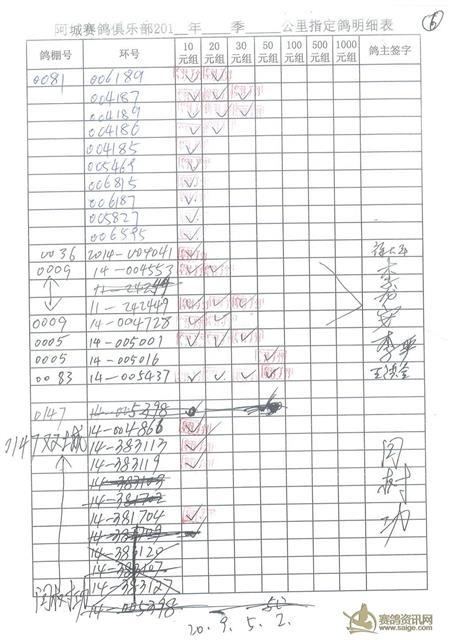 阿城赛鸽俱乐部201__年__季____公里指定鸽明细表
6
鸽棚号 环号 10元组 20元组 30元组 50元组 100元组 500元组 1000元组 鸽主签字
0081 006189 ✓ ✓
004187 ✓ ✓ ✓
004189 ✓ ✓ ✓
004186 ✓ ✓
004185 ✓
005469 ✓
006815 ✓
006187 ✓
005827 ✓
006595 ✓
0036 2014-009041 ✓
0009 14-004553 ✓ ✓
11-242449 ✓ ✓ ✓
0009 14-004728 ✓ ✓
0005 14-005001 ✓ ✓ ✓
0005 14-005016 ✓
0083 14-005437 ✓ ✓ ✓ ✓
0147 14-005398
14-004866 ✓
14-383113 ✓
14-383119 ✓
14-383103
14-381702
14-381704 ✓
14-383120
14-383107
14-383127
14-005398 50
20. 9. 5. 2.
赛鸽资讯网
www.saige.com